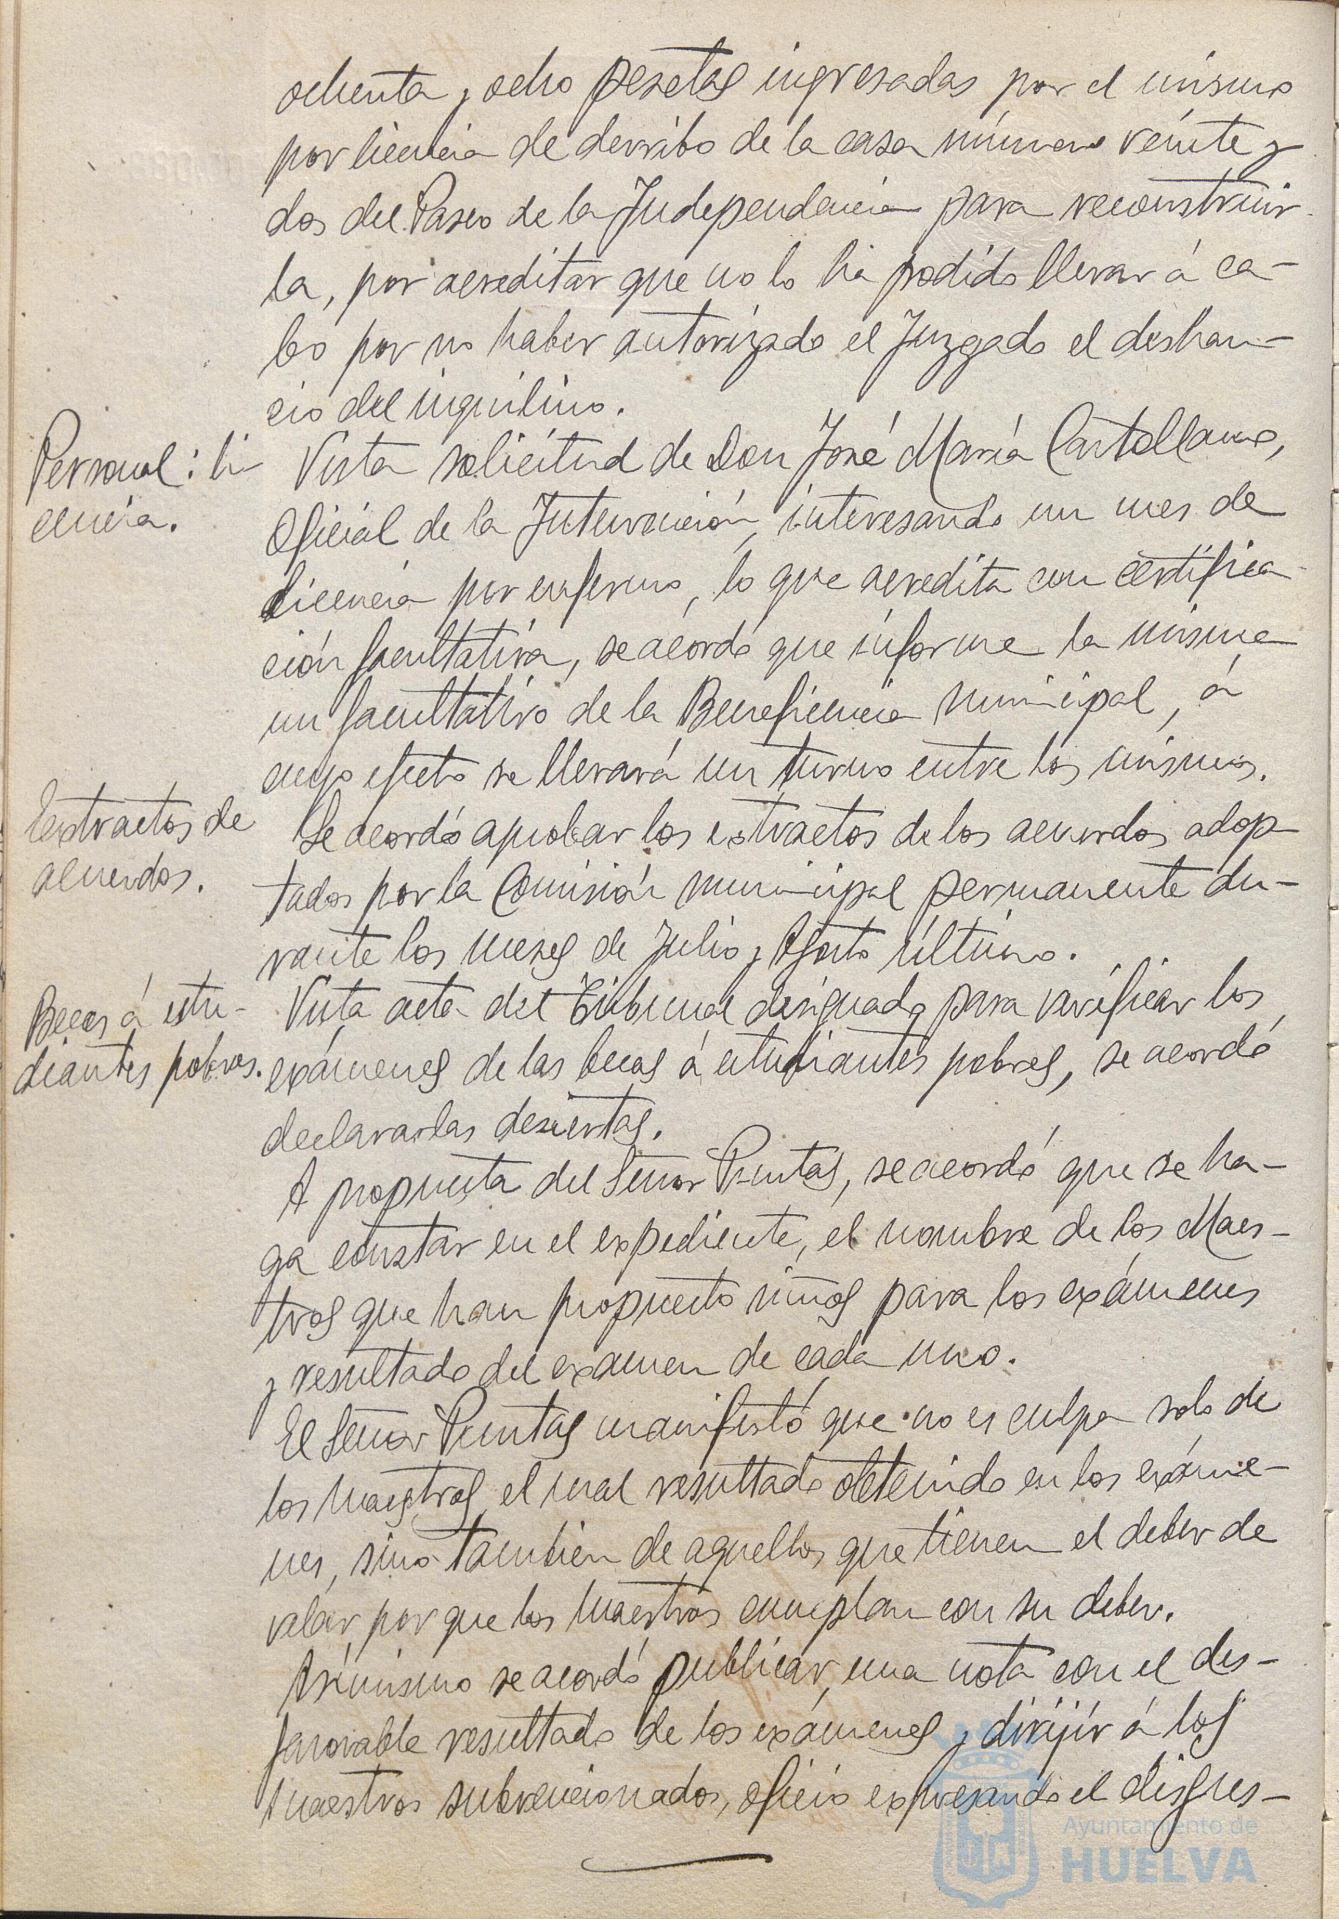 ochenta y ocho pesetas ingresadas por el mismo
por licencia de derribo de la casa número veinte y
dos del Paseo de la Independencia para reconstruir
la, por acreditar que no lo ha podido llevar á ca-
bo por no haber autorizado el Juzgado el deshau-
cio del inquilino.
Personal: li-
cencia.
Vista solicitud de Don José María Castellano,
Oficial de la Intervención, interesando un mes de
licencia por enfermo, lo que acredita con certifica
ción facultativa, se acordó que informe la misma
un facultativo de la Beneficencia municipal, á
cuyo efecto se llevará un turno entre los mismos.
Extractos de
acuerdos.
Se acordó aprobar los extractos de los acuerdos adop-
tados por la Comisión municipal permanente du-
rante los meses de Julio y Agosto último.
Becas á estu-
diantes pobres.
Vista acta del Tribunal designado para verificar los
exámenes de las becas á estudiantes pobres, se acordó
declararlas desiertas.
A propuesta del Señor Puntas, se acordó que se ha-
ga constar en el expediente, el nombre de los Maes-
tros que han propuesto niños para los exámenes
y resultado del examen de cada uno.
El Señor Puntas manifestó que no es culpa solo de
los maestros el mal resultado obtenido en los exáme-
nes, sino también de aquellos que tienen el deber de
velar por que los maestros cumplan con su deber.
Asimismo se acordó publicar una nota con el des-
favorable resultado de los exámenes y dirijir á los
maestros subvencionados, oficio expresando el disgus-
Ayuntamiento de
HUELVA